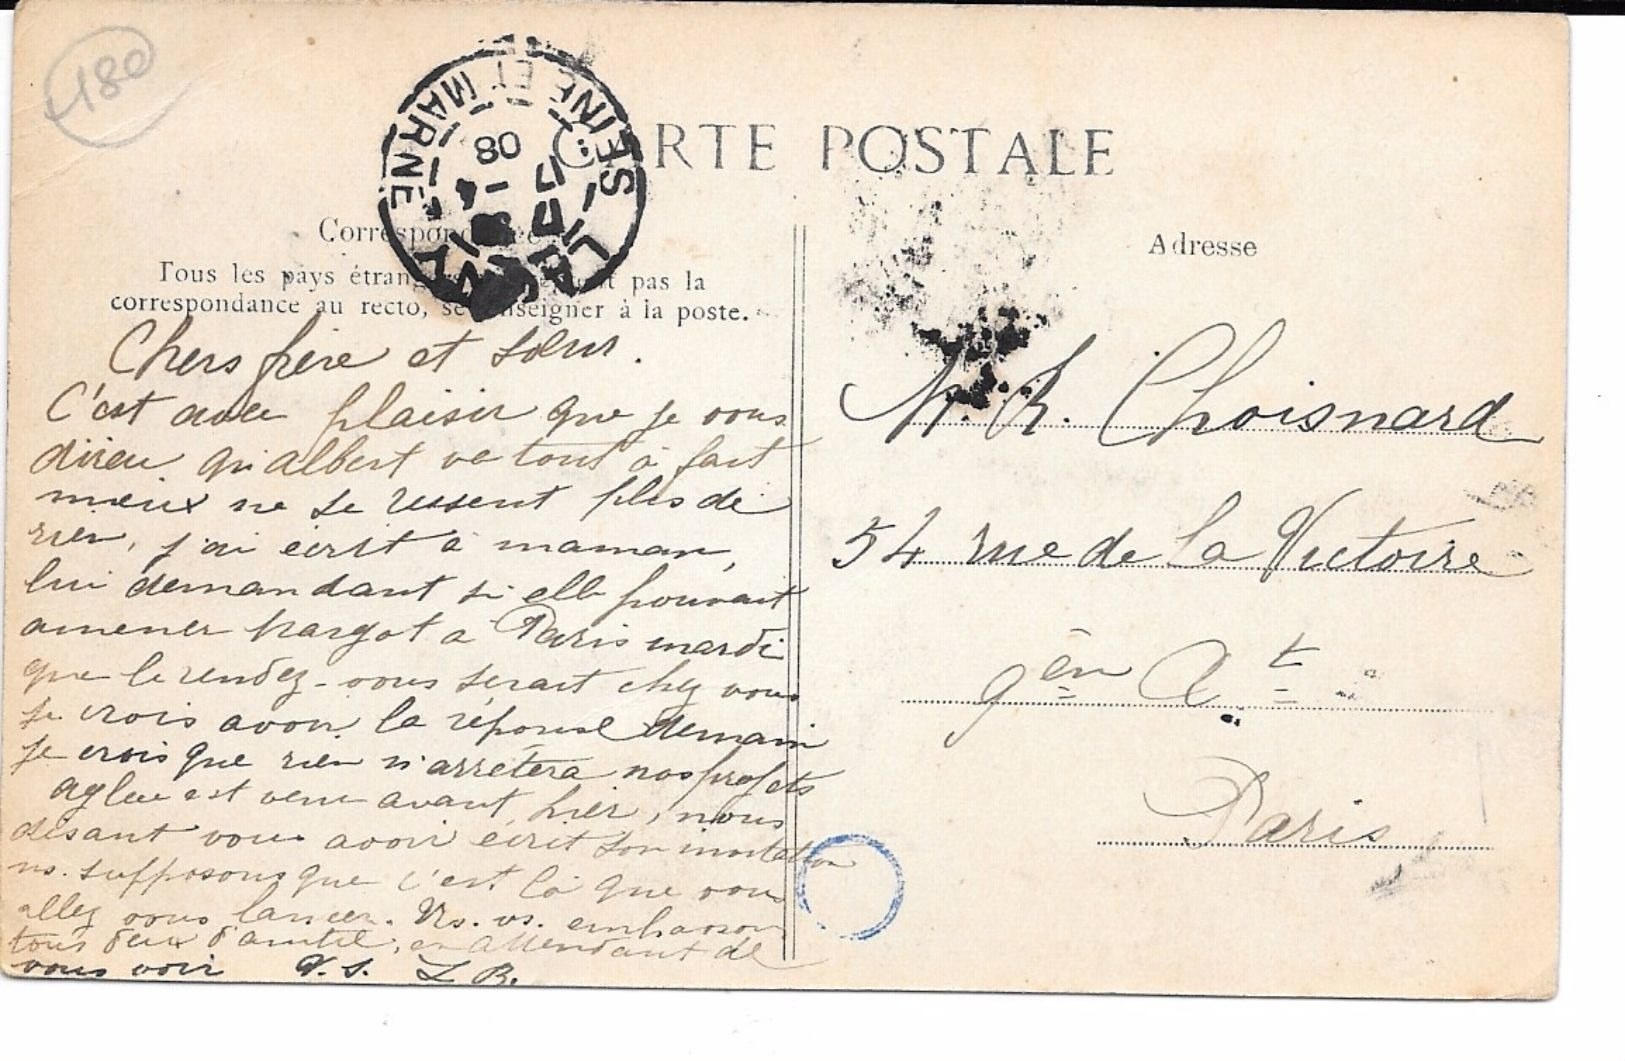 180
SEINE ET MARNE
08
CARTE POSTALE
Correspondance
Tous les pays étrangers pas la
correspondance au recto, se renseigner à la poste.
Chers frère et sœur.
C'est avec plaisir que je vous
dirai qu'albert va tout à fait
mieux ne se ressent plus de
rien, j'ai écrit à maman,
lui demandant si elle pouvait
amener margot a Paris mardi
que le rendez-vous serait chez vous
je crois avoir la réponse demain
je crois que rien n'arrêtera nos projets
est venu avant hier, nous
disant vous avoir écrit son invitation
ns. supposons que c'est là que vous
allez vous lancer. Ns. vs. embrassons
tous deux d'amitié, en attendant de
vous voir V. S. L B.
Adresse
M. R. Choisnard
54 rue de la Victoire
9èm At
Paris